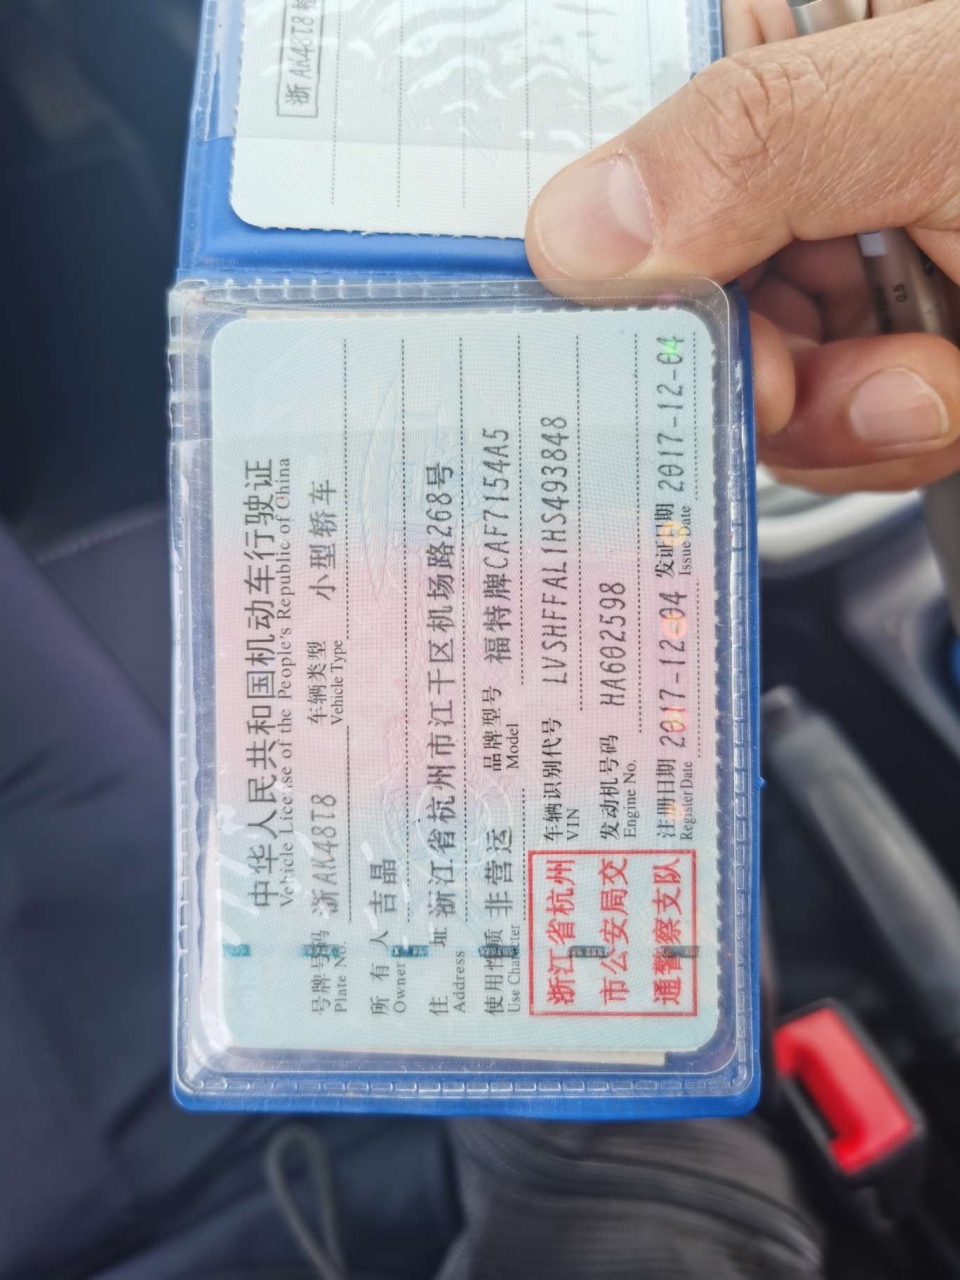 浙AK48T8
中华人民共和国机动车行驶证
Vehicle License of the People's Republic of China
号牌号码 浙AK48T8 车辆类型 小型轿车
Plate No. Vehicle Type
所有人 吉晶
Owner
住址 浙江省杭州市江干区机场路268号
Address
使用性质 非营运 品牌型号 福特牌CAF7154A5
Use Character Model
浙江省杭州
市公安局交
通警察支队
车辆识别代号 LVSHFFAL1HS493848
VIN
发动机号码 HA602598
Engine No.
注册日期 2017-12-04 发证日期 2017-12-04
Register Date Issue Date
0.5